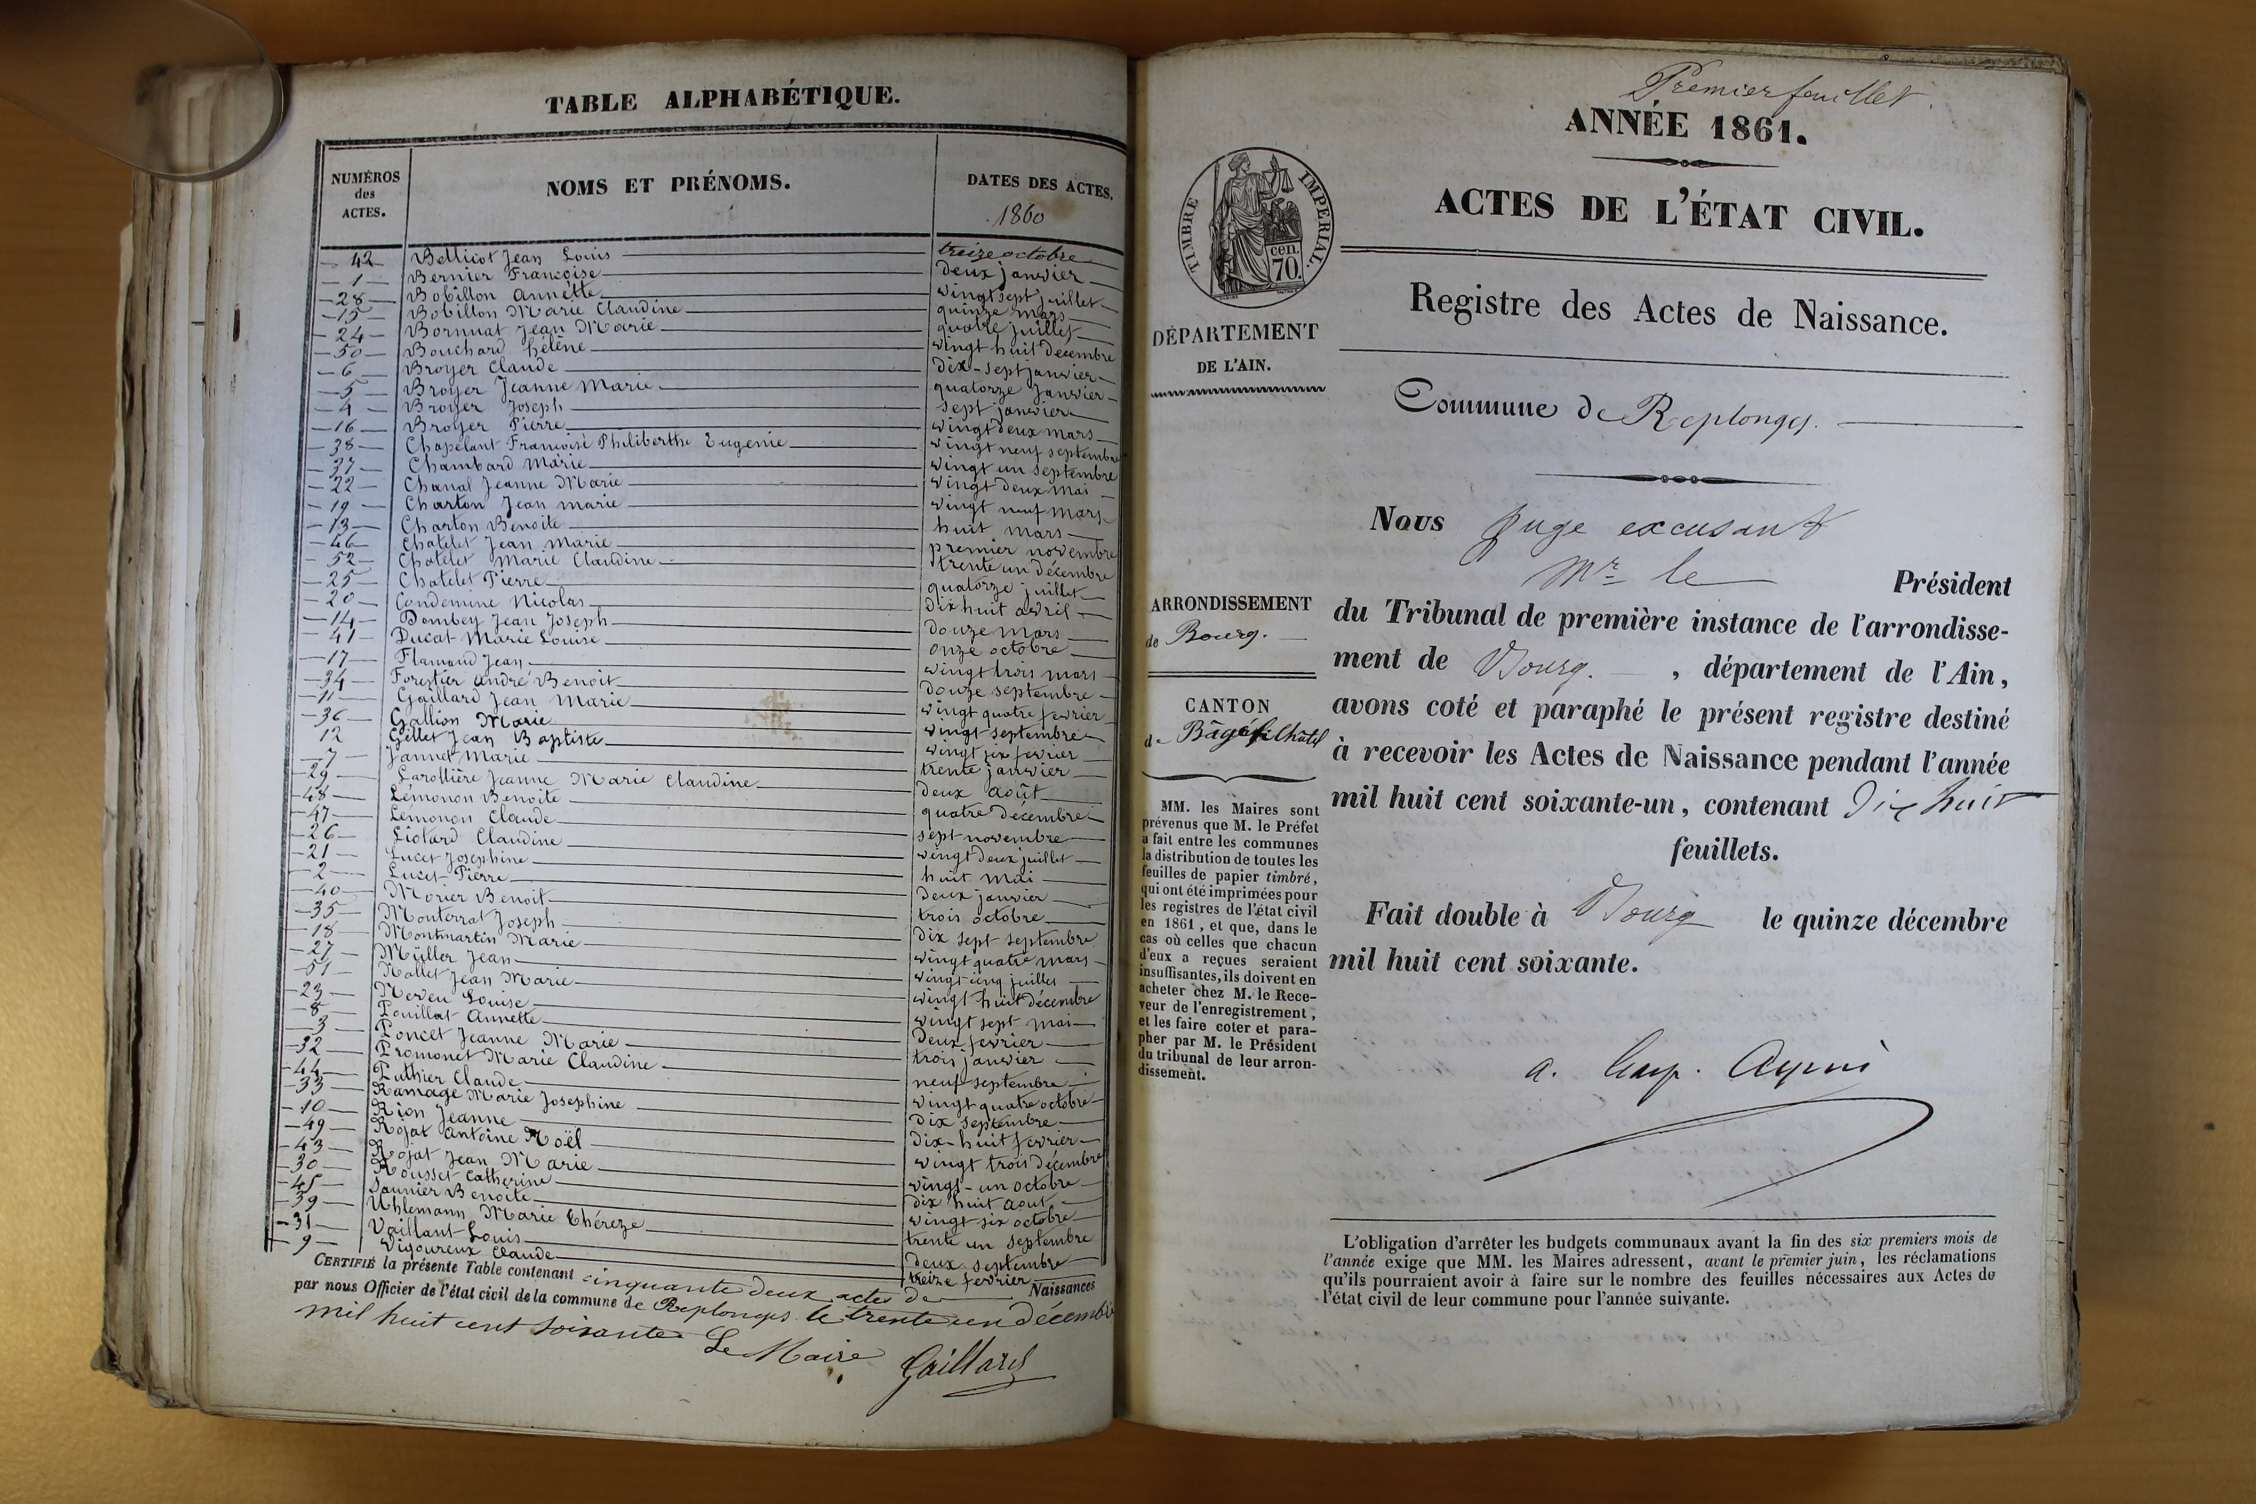 TABLE ALPHABÉTIQUE.
NUMÉROS des ACTES. NOMS ET PRÉNOMS. DATES DES ACTES.
1860
42 Bellicot Jean Louis treize octobre
1 Bernier Françoise deux janvier
28 Bobillon Annette vingt sept juillet
15 Bobillon Marie Claudine quinze mars
24 Bornuat Jean Marie quatre juillet
50 Bouchard hélène vingt huit décembre
6 Broyer Claude dix-sept janvier
5 Broyer Jeanne Marie quatorze janvier
4 Broyer Joseph sept janvier
16 Broyer Pierre vingt deux mars
38 Chapelant Françoise Philiberthe Eugenie vingt neuf septembre
37 Chambard Marie vingt un septembre
22 Chanal Jeanne Marie vingt deux mai
19 Charton Jean marie vingt neuf mars
13 Charton Benoite huit mars
46 Chatelet Jean Marie premier novembre
52 Chatelet Marie Claudine trente un décembre
25 Chatelet Pierre quatorze juillet
20 Condemine Nicolas dix huit avril
14 Dombey Jean Joseph douze mars
41 Ducat Marie Louise onze octobre
17 Flamand Jean vingt trois mars
34 Forestier André Benoit douze septembre
11 Gaillard Jean Marie vingt quatre fevrier
36 Gallion Marie vingt septembre
12 Gillet Jean Baptiste vingt six fevrier
7 Jannet Marie trente janvier
29 Larollière Jeanne Marie Claudine deux août
48 Lémonon Benoite quatre décembre
47 Lémonon Claude sept novembre
26 Liotard Claudine vingt deux juillet
21 Lucet Josephine huit mai
2 Lucet Pierre deux janvier
40 Morier Benoit trois octobre
35 Monterrat Joseph dix sept septembre
18 Montmartin Marie vingt quatre mars
27 Müller Jean vingt cinq juillet
51 Nallet Jean Marie vingt huit décembre
23 Neveu Louise vingt sept mai
8 Pouillat Annette deux fevrier
3 Poncet Jeanne Marie trois janvier
32 Promonet Marie Claudine neuf septembre
44 Puthier Claude vingt quatre octobre
33 Ramage Marie Josephine dix septembre
10 Rion Jeanne dix-huit fevrier
49 Rojat Antoine Noël vingt trois décembre
43 Rojat Jean Marie vingt-un octobre
30 Rousset Catherine dix huit aout
45 Saunier Benoite vingt six octobre
39 Uhlemann Marie Théreze trente un septembre
31 Vaillant Louis deux septembre
9 Vigoureux Claude treize fevrier
CERTIFIÉ la présente Table contenant cinquante deux actes de Naissances
par nous Officier de l'état civil de la commune de Replonges le trente un décembre
mil huit cent soixante Le Maire
Gaillard
Premier feuillet.
ANNÉE 1861.
ACTES DE L'ÉTAT CIVIL.
TIMBRE IMPERIAL.
cen.
70.
Registre des Actes de Naissance.
DÉPARTEMENT
DE L'AIN.
Commune de Replonges.
Nous Juge excusant
Mr le Président
du Tribunal de première instance de l'arrondisse-
ment de Bourg. , département de l'Ain,
avons coté et paraphé le présent registre destiné
à recevoir les Actes de Naissance pendant l'année
mil huit cent soixante-un, contenant Dix huit
feuillets.
Fait double à Bourg le quinze décembre
mil huit cent soixante.
ARRONDISSEMENT
de Bourg.
CANTON
de Bâgé-le-Châtel
MM. les Maires sont
prévenus que M. le Préfet
a fait entre les communes
la distribution de toutes les
feuilles de papier timbré,
qui ont été imprimées pour
les registres de l'état civil
en 1861, et que, dans le
cas où celles que chacun
d'eux a reçues seraient
insuffisantes, ils doivent en
acheter chez M. le Rece-
veur de l'enregistrement,
et les faire coter et para-
pher par M. le Président
du tribunal de leur arron-
dissement.
L'obligation d'arrêter les budgets communaux avant la fin des six premiers mois de
l'année exige que MM. les Maires adressent, avant le premier juin, les réclamations
qu'ils pourraient avoir à faire sur le nombre des feuilles nécessaires aux Actes de
l'état civil de leur commune pour l'année suivante.